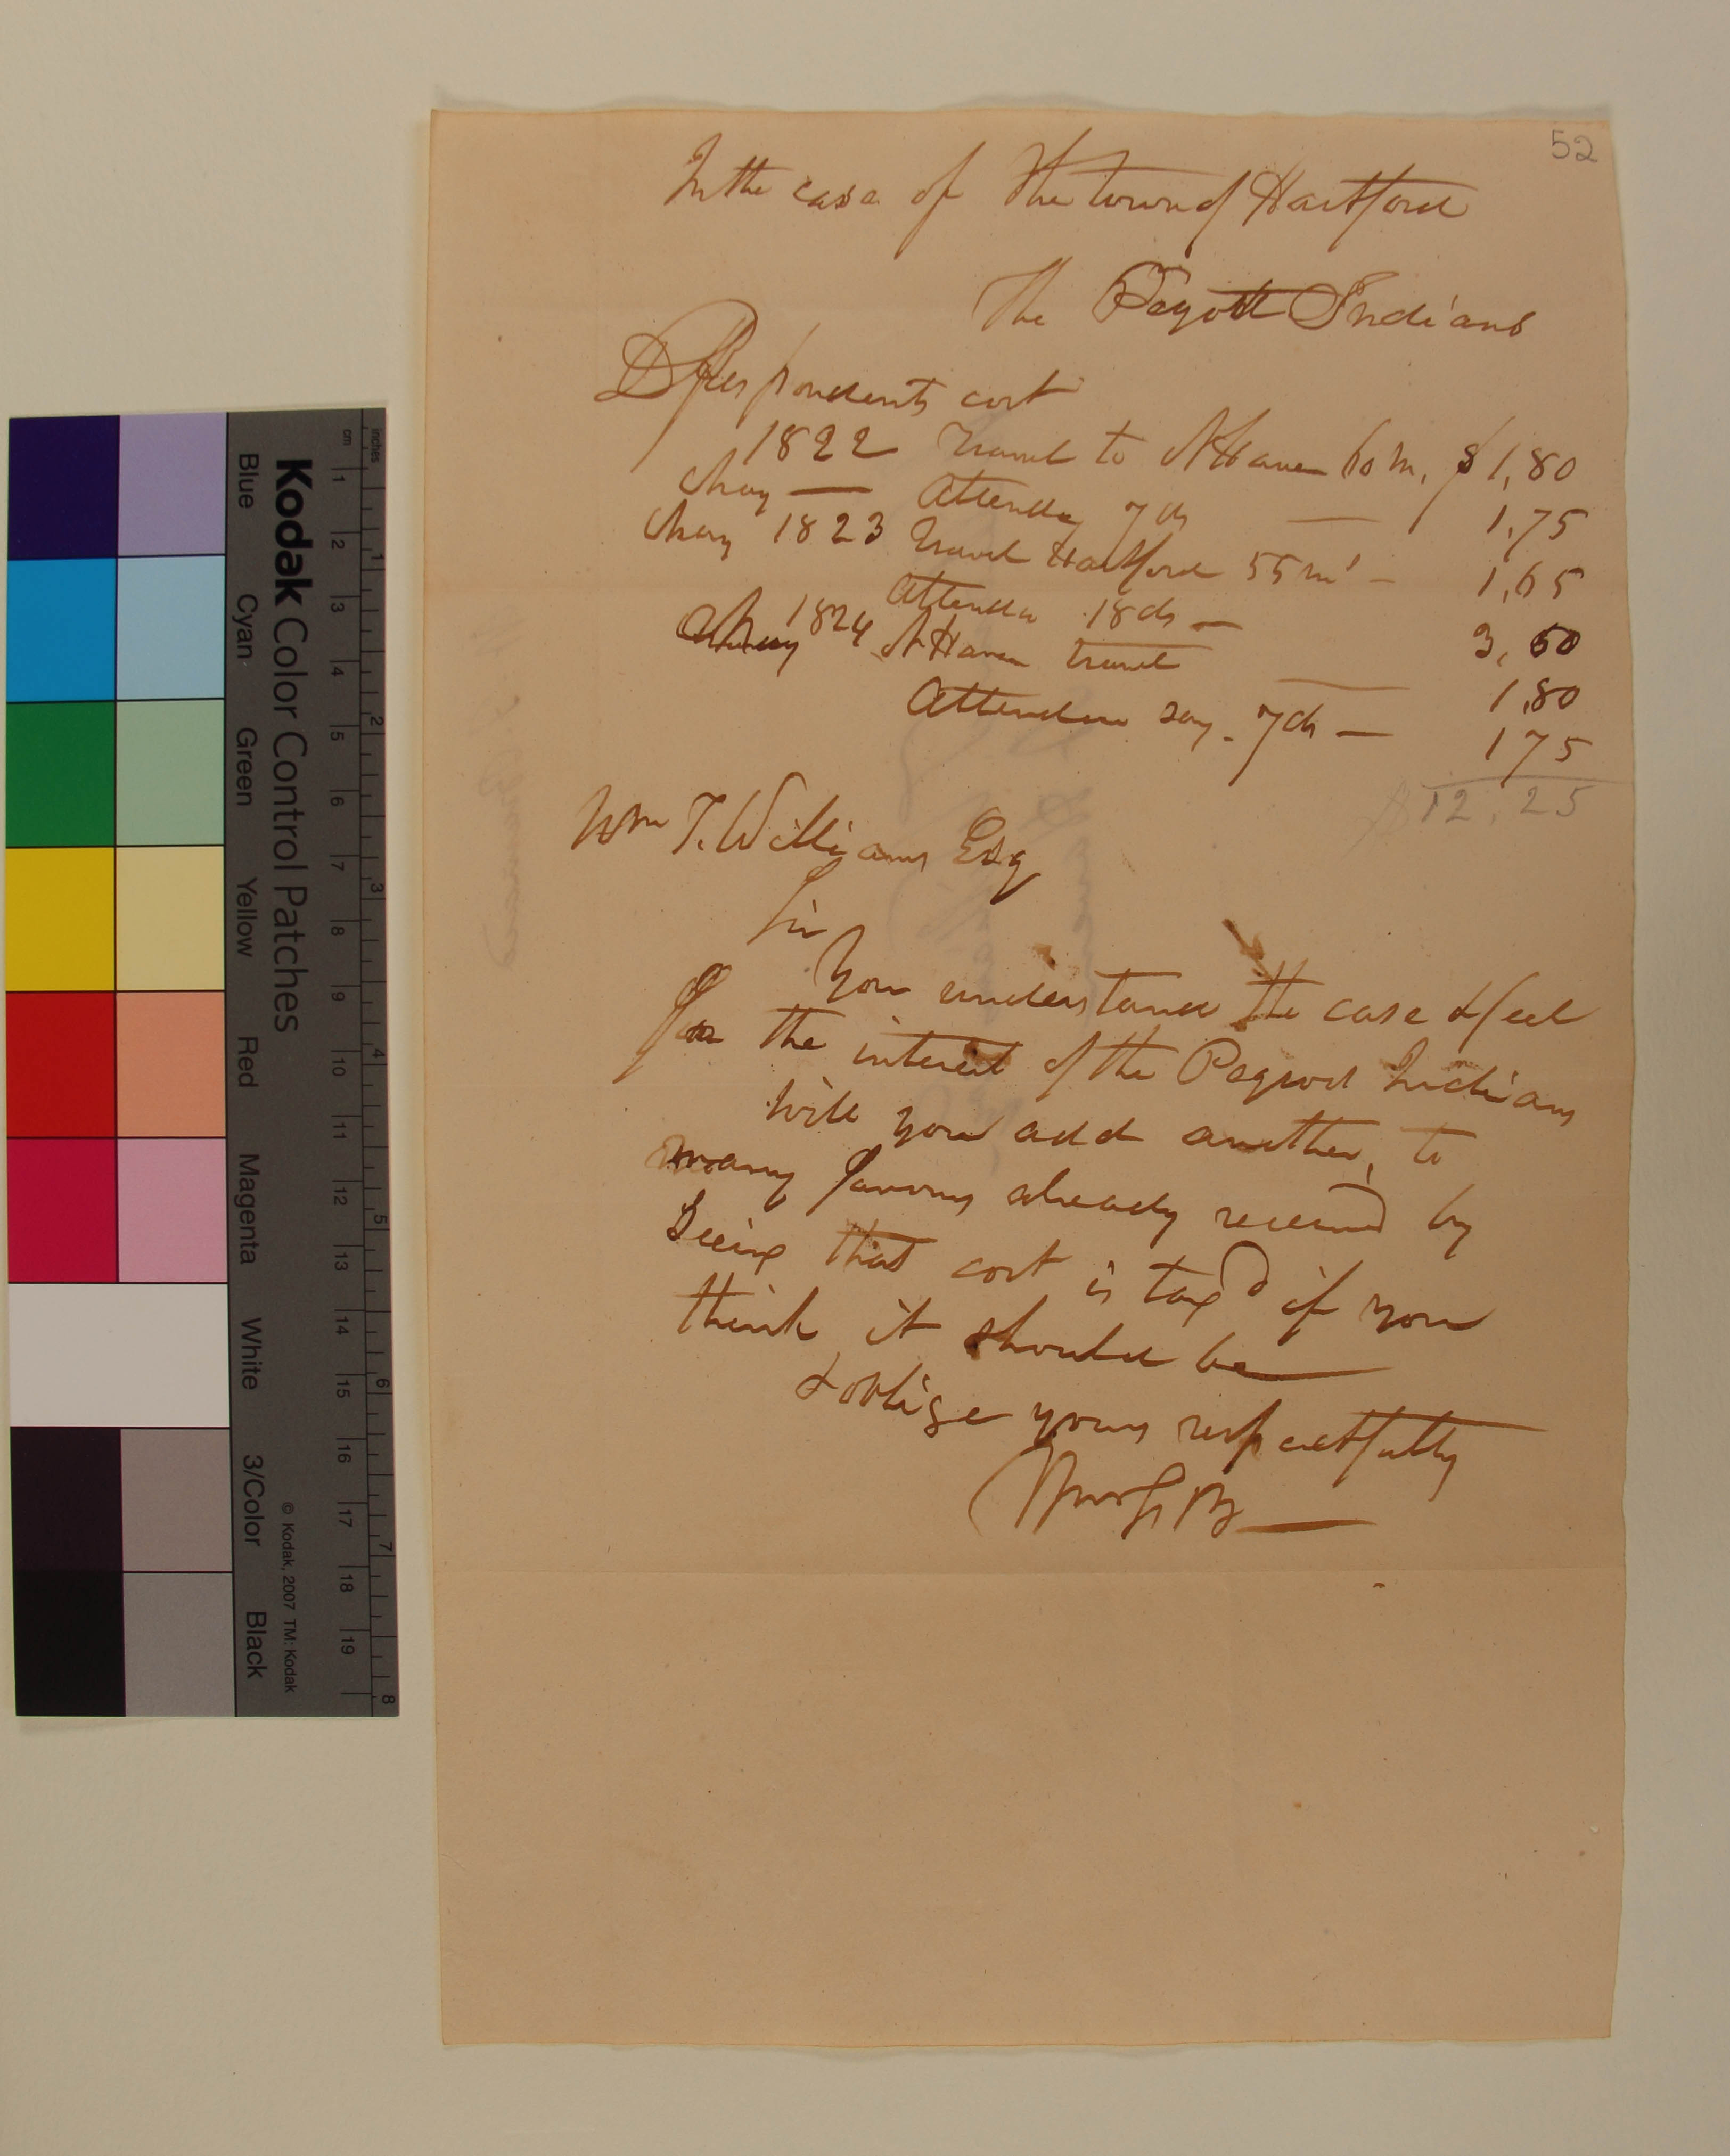 52
In the case of the town of Hartford
The Pequott Indians
Respondents cost
1822 Travel to N Haven 60 m, $1,80
May — Attendg 7 ds — 1,75
May 1823 Travel Hartford 55 m' – 1,65
Attendce 18 ds — 3,50
May 1824 N Haven travel — 1,80
Attendance say. 7 ds — 1 75
$12,25
Wm T. Williams Esq
Sir
You understand the case & feel
for the interest of the Pequod Indians
will you add another, to
many favours already received by
Seeing that cost is taxd if you
think it should be
& oblige yours respectfully
Kodak Color Control Patches
Blue Cyan Green Yellow Red Magenta White 3/Color Black
© Kodak, 2007 TM: Kodak
cm 1 2 3 4 5 6 7 8 9 10 11 12 13 14 15 16 17 18 19
inches 1 2 3 4 5 6 7 8